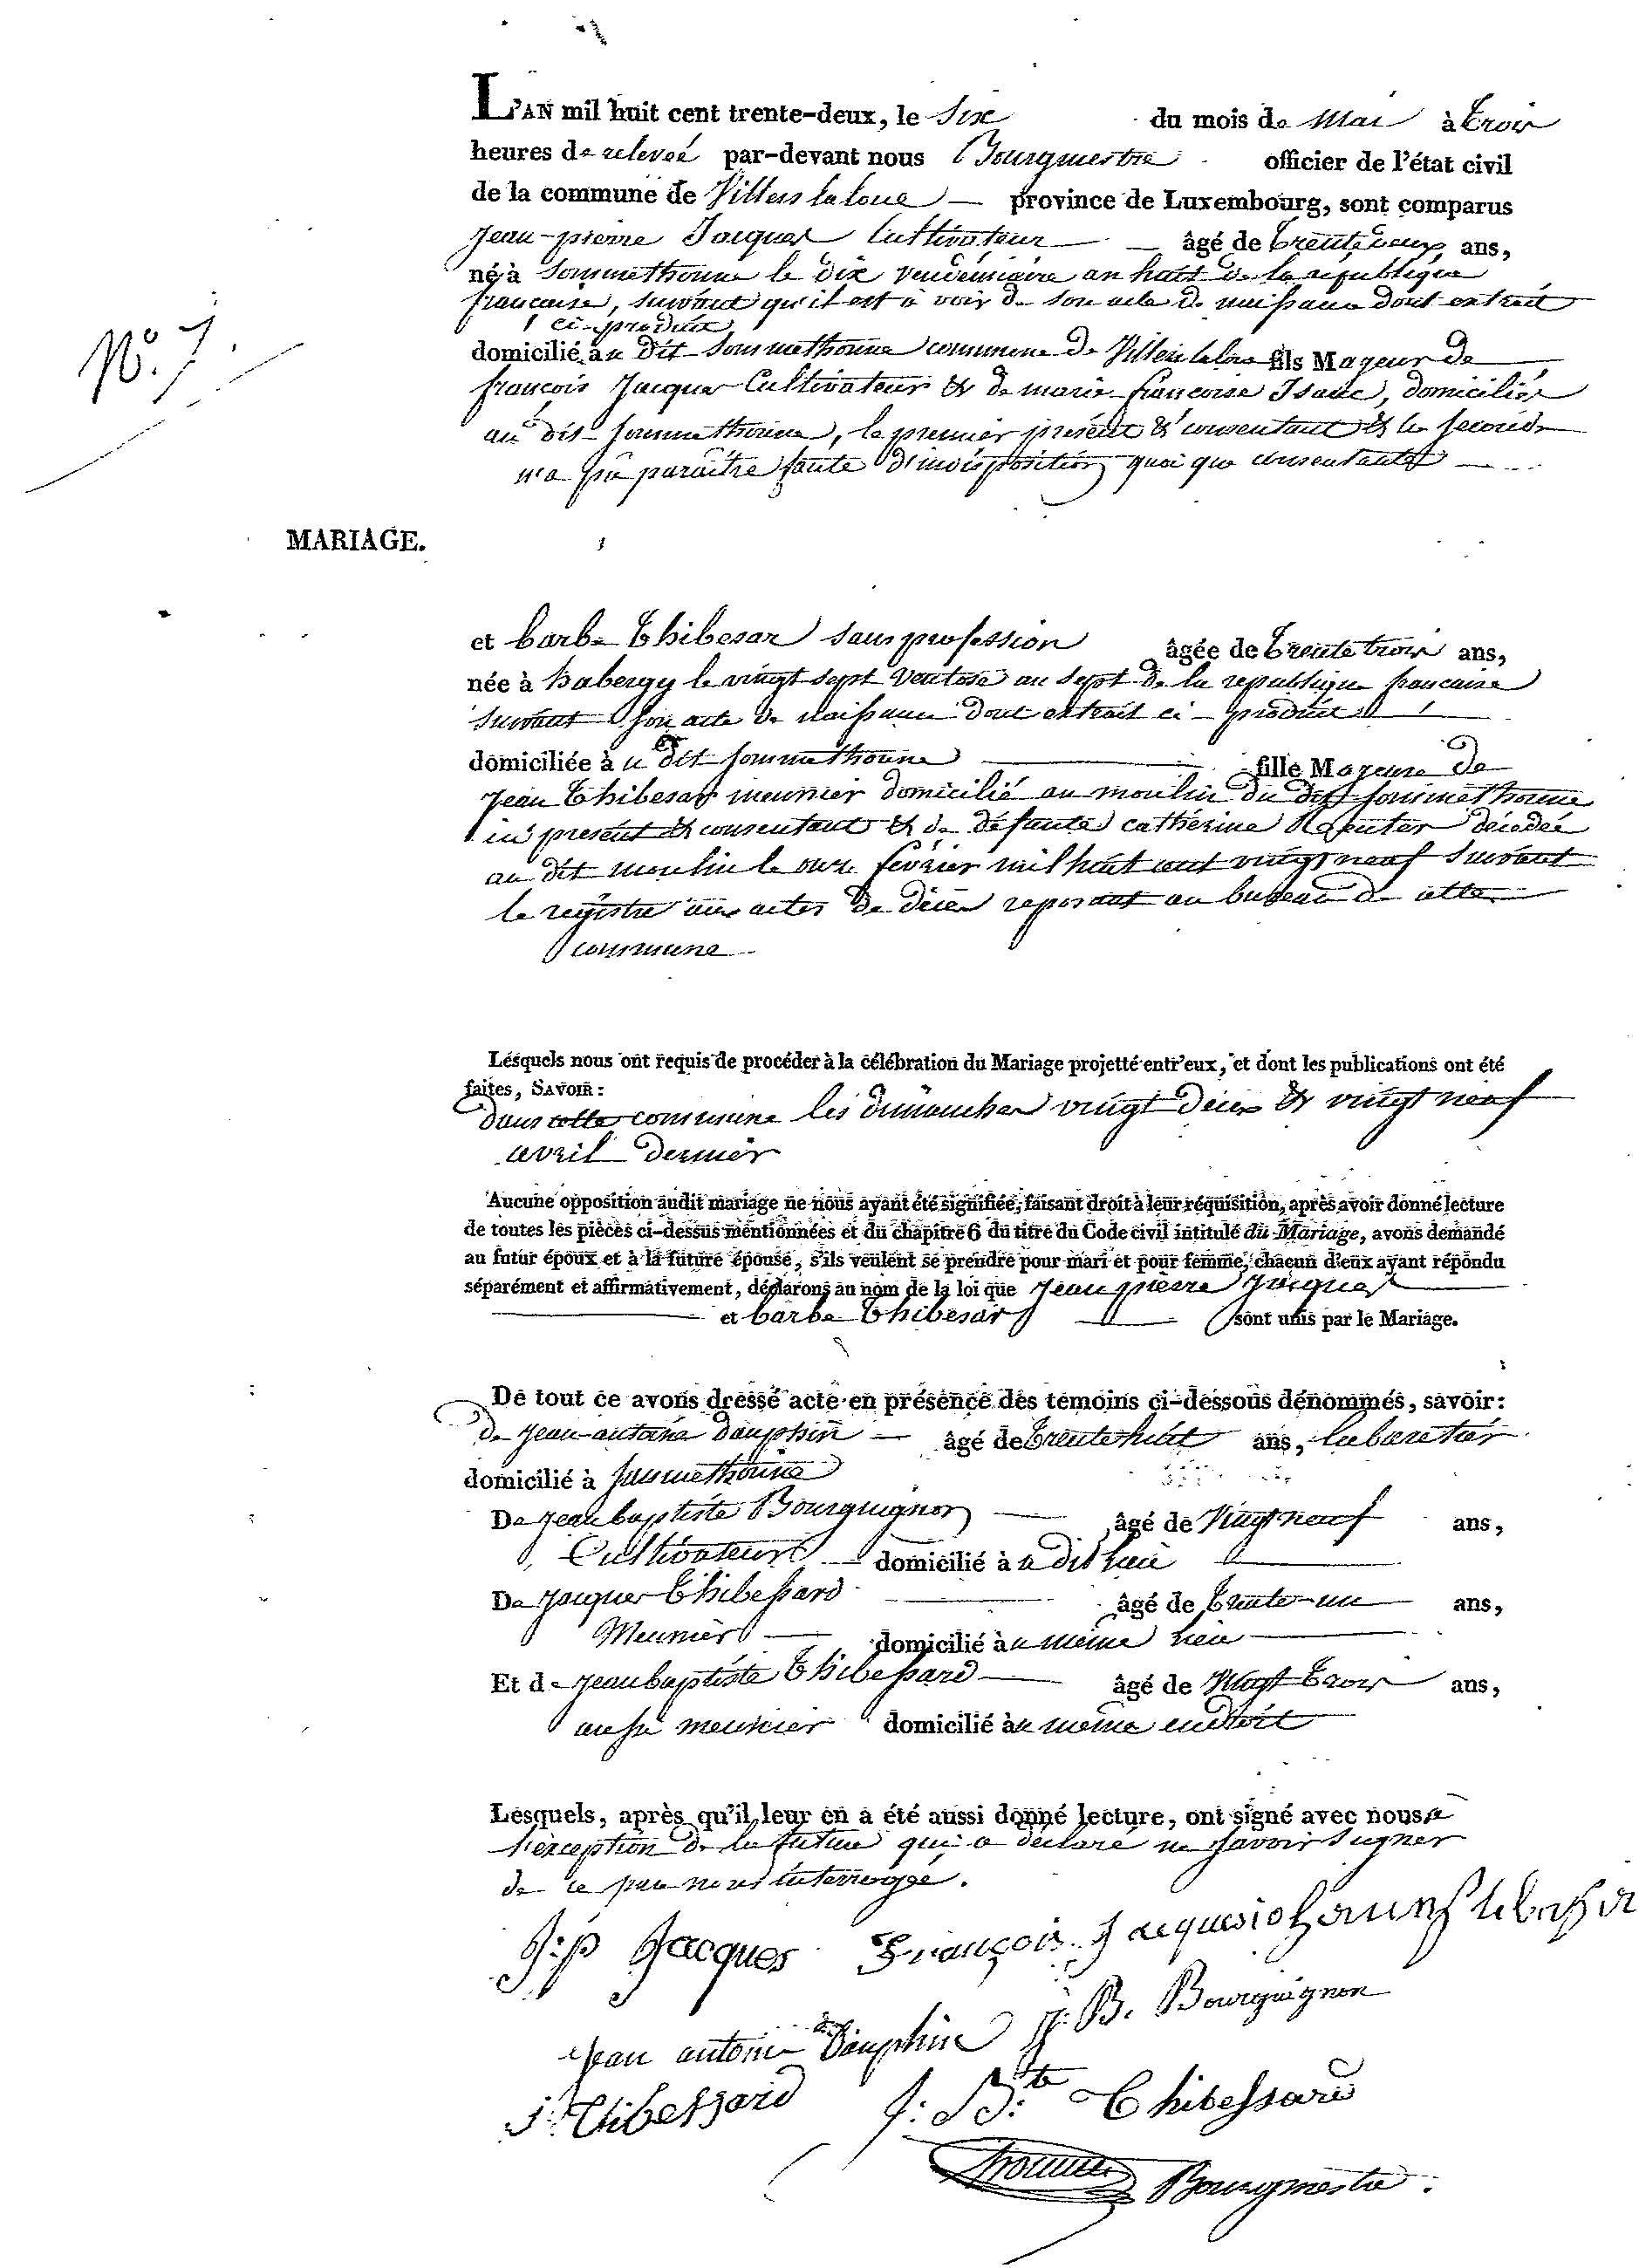 L'AN mil huit cent trente-deux, le Six du mois de Mai à trois
heures de relevée par-devant nous Bourgmestre officier de l'état civil
de la commune de Villers la loue — province de Luxembourg, sont comparus
Jean-pierre Jacques Cultivateur — âgé de trente deux ans,
né à Sommethonne le dix vendémiaire an huit de la république
française, suivant qu'il est à voir de son acte de naissance dont extrait
ci-produit
domicilié au dit Sommethonne commune de Villers la loue fils Majeur de
françois Jacques Cultivateur & de marie françoise Isaac, domiciliés
au dit Sommethonne, le premier présent & consentant & la seconde
n'a pu paraître faute d'indisposition quoi que consentante
N.º 7.
MARIAGE.
et barbe Thibesar sans profession âgée de trente trois ans,
née à habergy le vingt sept Ventose an sept de la republique francaise
suivant son acte de naissance dont extrait ci-produit
domiciliée au dit Sommethonne fille Majeure de
Jean Thibesar meunier domicilié au moulin du dit Sommethonne
ici présent & consentant & de défunte catherine Reuter décédée
au dit moulin le onze février mil huit cent vingt neuf suivant
le registre aux actes de décès reposant au bureau de cette
commune
Lesquels nous ont requis de procéder à la célébration du Mariage projetté entr'eux, et dont les publications ont été
faites, SAVOIR :
dans cette commune les dimanches vingt deux & vingt neuf
avril dernier
Aucune opposition audit mariage ne nous ayant été signifiée, faisant droit à leur réquisition, après avoir donné lecture
de toutes les pièces ci-dessus mentionnées et du chapitre 6 du titre du Code civil intitulé du Mariage, avons demandé
au futur époux et à la future épouse, s'ils veulent se prendre pour mari et pour femme, chacun d'eux ayant répondu
séparément et affirmativement, déclarons au nom de la loi que Jean pierre Jacques
et barbe Thibesar sont unis par le Mariage.
De tout ce avons dressé acte en présence des témoins ci-dessous dénommés, savoir :
de Jean-antoine dauphin — âgé de trente huit ans, Cabaretier
domicilié à Sommethonne
De Jean baptiste Bourguignon — âgé de Vingt neuf ans,
Cultivateur — domicilié au dit lieu
De Jacques Thibessard — âgé de trente-un ans,
Meunier — domicilié au même lieu
Et de Jean baptiste Thibessard — âgé de Vingt trois ans,
aussi meunier domicilié au même endroit
Lesquels, après qu'il leur en a été aussi donné lecture, ont signé avec nous à
l'exception de la future qui a déclaré ne savoir signer
de ce par nous interrogée.
J:p Jacques François Jacques
Jean antoine Dauphin J. B. Bourguignon
J: Thibessard J: B:te Thibessard
Bourgmestre.